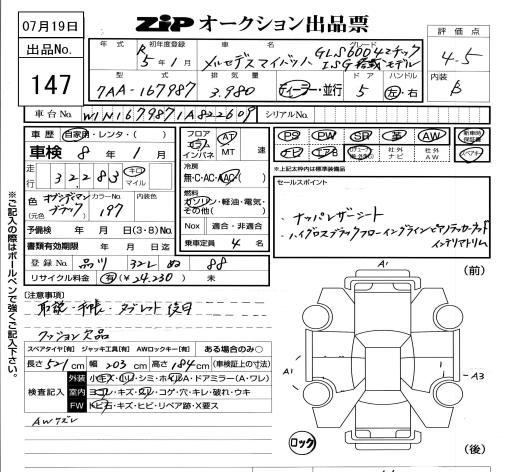 07月19日
ZIP オークション出品票
出品No.
147
年式 初年度登録 車名 グレード 評価点
R5年1月 メルセデスマイバッハ GLS600 4マチック ISG搭載モデル 4.5
型式 排気量 ドア ハンドル 内装
7AA-167987 3.980 ディーラー・並行 5 左・右 B
車台No. W1N1679871A822609 シリアルNo.
車歴 自家用・レンタ( )
車検 8年1月
走行 32283 キロ マイル
色 (元色) オブシディアンブラック カラーNo. 197 内装色
予備検 年 月 日(3・8)No.
書類有効期限 年 月 日迄
登録No. 品川 88
リサイクル料金 有(¥24.230) 未
フロア コラム インパネ AT MT 速
冷房 無・C・AC・WAC
燃料 ガソリン・軽油・電気・その他( )
Nox 適合・非適合
乗車定員 4 名
PS PW SR 革 AW 新車時保証書
社外ナビ 社外AW スペアキー
※上記太枠は標準装備品
セールスポイント
・ナッパレザーシート
・ハイグロスブラックフローイングラインピアノラッカーウッドインテリアトリム
[注意事項]
取説・手帳・タブレット後日
クッション欠品
スペアタイヤ[有] ジャッキ工具[有] AWロックキー[有] ある場合のみ○
長さ521cm 幅203cm 高さ184cm (車検証上の寸法)
検査記入
外装 小キズ・凹・シミ・ホイルA・ドアミラー(A・ワレ)
室内 ヨゴレ・キズ・スレ・コゲ・穴・キレ・破れ・ウキ
FW トビ石・キズ・ヒビ・リペア跡・X要ス
AWズレ
※ご記入の際はボールペンで強くご記入下さい。
A1 (前)
A1 A3
ロック (後)